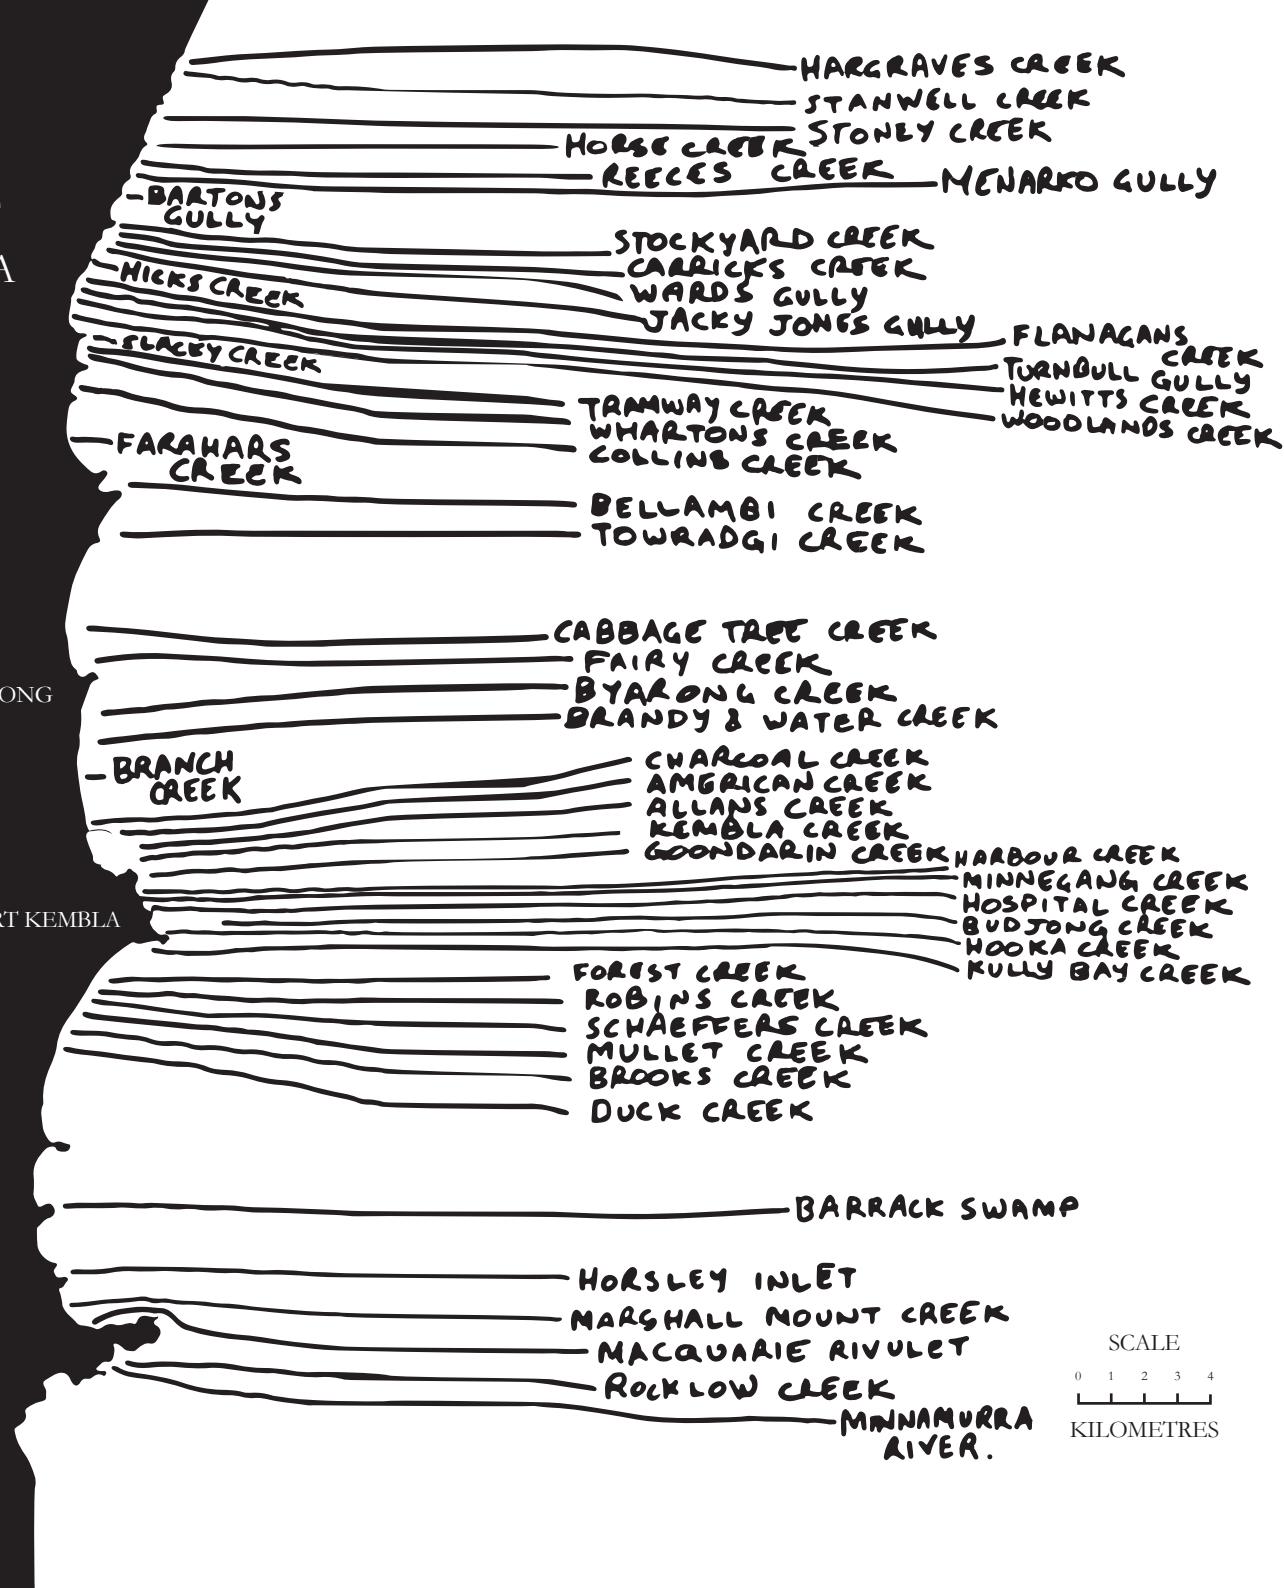 HARGRAVES CREEK
STANWELL CREEK
STONEY CREEK
HORSE CREEK
REECES CREEK
MENARKO GULLY
BARTONS
GULLY
STOCKYARD CREEK
CARRICKS CREEK
WARDS GULLY
HICKS CREEK
JACKY JONES GULLY
FLANAGANS
CREEK
TURNBULL GULLY
SLACEY CREEK
HEWITTS CREEK
WOODLANDS CREEK
TRAMWAY CREEK
WHARTONS CREEK
COLLINS CREEK
FARAHARS
CREEK
BELLAMBI CREEK
TOWRADGI CREEK
CABBAGE TREE CREEK
FAIRY CREEK
ONG
BYARONG CREEK
BRANDY & WATER CREEK
BRANCH
CREEK
CHARCOAL CREEK
AMERICAN CREEK
ALLANS CREEK
KEMBLA CREEK
GOONDARIN CREEK
HARBOUR CREEK
MINNEGANG CREEK
HOSPITAL CREEK
RT KEMBLA
BUDJONG CREEK
HOOKA CREEK
KULLY BAY CREEK
FOREST CREEK
ROBINS CREEK
SCHAEFFERS CREEK
MULLET CREEK
BROOKS CREEK
DUCK CREEK
BARRACK SWAMP
HORSLEY INLET
MARSHALL MOUNT CREEK
MACQUARIE RIVULET
ROCKLOW CREEK
MINNAMURRA
RIVER.
SCALE
0 1 2 3 4
KILOMETRES
A